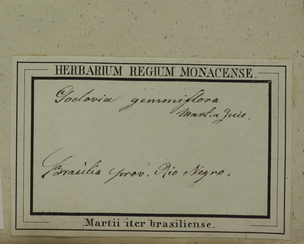 HERBARIUM REGIUM MONACENSE.
gemmiflora
Mart. & Zucc.
Brasilia prov. Rio Negro.
Martii iter brasiliense.